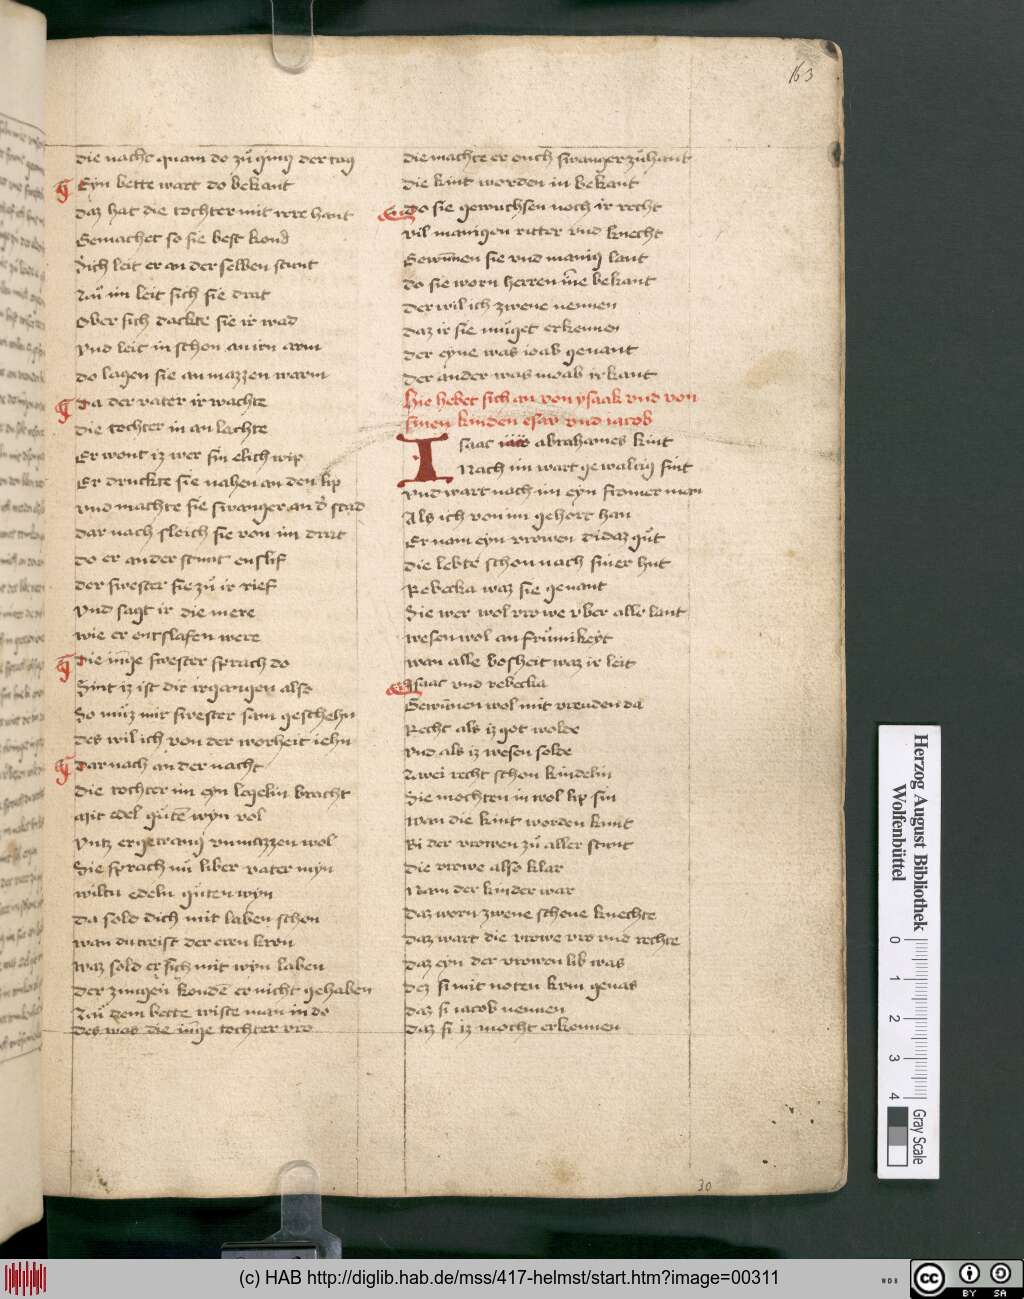 163
die nacht quam do zů ging der tag
Eyn bette wart do bekant
daz hat die tochter mit irre hant
Gemachet so sie best kond
Sich leit er an der selben stunt
Zů im leit sich sie drat
Ober sich dackte sie ir wad
Vnd leit in schon an irn arm
do lagen sie an mazzen warm
Da der vater ir wachte
die tochter in an lachte
Er wont iz wer sin elich wip
Er druckte sie nahen an den lip
vnd machte sie swanger an d stad
dar nach sleich sie von im drat
do er an der stunt enslif
der swester sie zů ir rief
Vnd sagt ir die mere
wie er entslafen were
Die iunge swester sprach do
Sint iz ist dir irgangen also
So můz mir swester sam geschehn
des wil ich von der worheit iehn
Dar nach an der nacht
die tochter im eyn legelin bracht
Mit edel gůtē wyn vol
Vntz er getrang vnmazzen wol
Sie sprach nů liber vater myn
wiltu edeln gůten wyn
da sold dich mit laben schon
wan du treist der eren kron
waz sold er sich mit wyn laben
der zungen konde er nicht gehaben
Zů dem bette wiste man in do
des was die iunge tochter vro
die machte er ouch swanger zů hant
die kint worden in bekant
Do sie gewuchsen noch ir recht
vil manigen ritter vnd knecht
Gewunnen sie vnd manig lant
do sie worn herren inne bekant
der wil ich zwene nennen
daz ir sie můget erkennen
der eyne was ioab genant
der ander was moab irkant
Hie hebet sich an von ysaak vnd von
sinen kinden esav vnd iacob
Isaac abrahames kint
Nach im wart gewaltig sint
vnd wart nach im eyn fromer man
Als ich von im gehort han
Er nam eyn vrowen di daz gůt
die lebte schon nach siner hut
Rebecka waz sie genant
Sie wer wol vrowe vber alle lant
wesen wol an frůmikeyt
wan alle bosheit waz ir leit
Isaac vnd rebecka
Gewunnen wol mit vreuden da
Recht als iz got wolde
vnd als iz wesen solde
Zwei recht schon kindelin
Sie mochten in wol lip sin
wan die kint worden kunt
Bi der vrowen zů aller stunt
die vrowe also klar
Nam der kinder war
daz worn zwene schone knechte
daz wart die vrowe vro vnd rechte
daz eyn der vrowen lib was
dez si mit noten kvm genas
daz si iacob nennen
daz si iz mocht erkennen
30
Herzog August Bibliothek
Wolfenbüttel
0 1 2 3 4
Gray Scale
(c) HAB http://diglib.hab.de/mss/417-helmst/start.htm?image=00311
WDB
cc BY SA